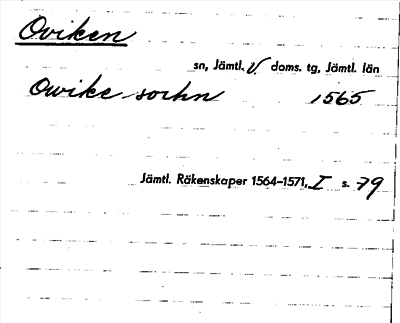 Oviken
sn, Jämtl. V. doms. tg, Jämtl. län
Owike sochn 1565
Jämtl. Räkenskaper 1564–1571, I s. 79